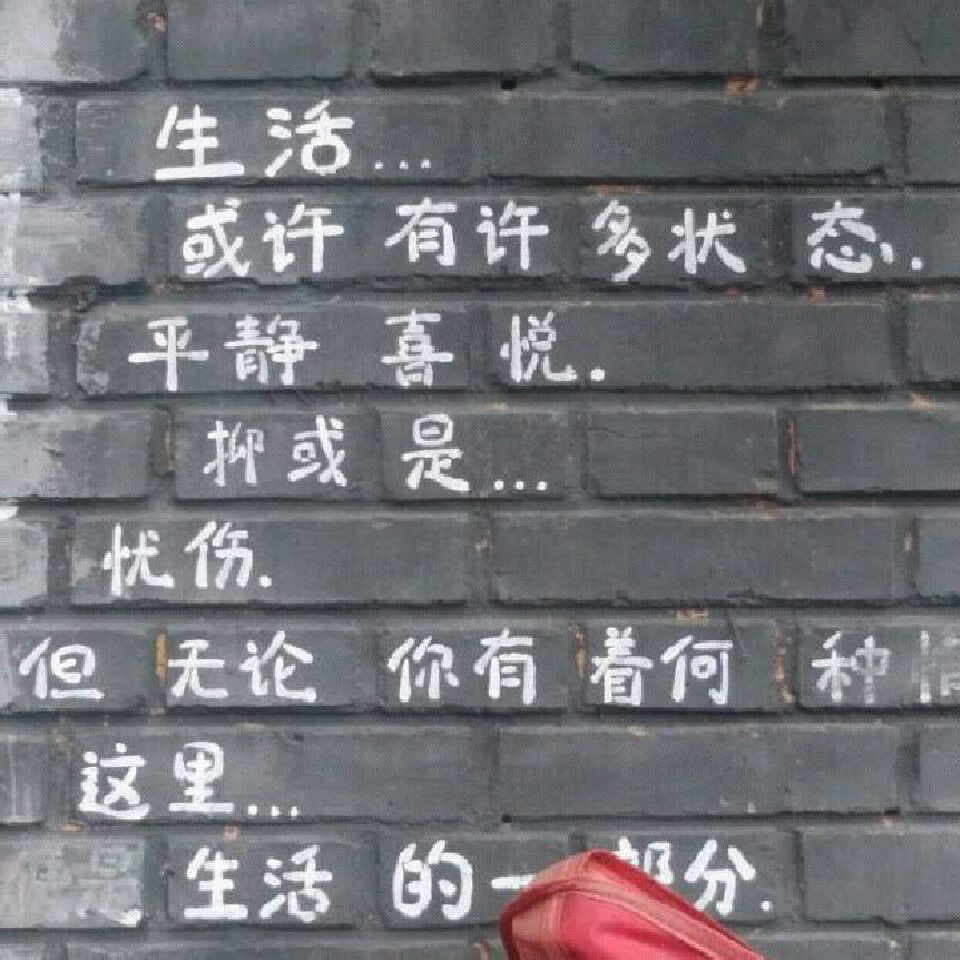 生活...
或许有许多状态.
平静喜悦.
抑或是...
忧伤.
但无论你有着何种
这里...
生活的一部分.